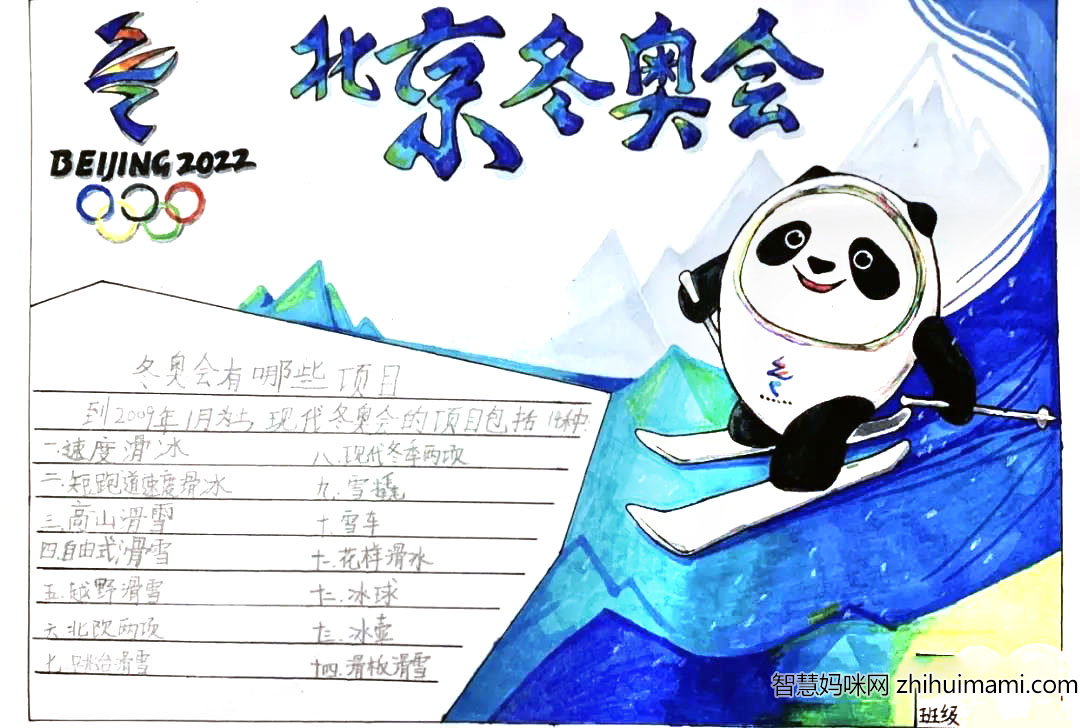 北京冬奥会
BEIJING 2022
冬奥会有哪些项目
到2009年1月为止,现代冬奥会的项目包括14种:
一.速度滑冰
二.短跑道速度滑冰
三.高山滑雪
四.自由式滑雪
五.越野滑雪
六.北欧两项
七.跳台滑雪
八.现代冬季两项
九.雪橇
十.雪车
十一.花样滑冰
十二.冰球
十三.冰壶
十四.滑板滑雪
智慧妈咪网 zhihuimami.com
班级